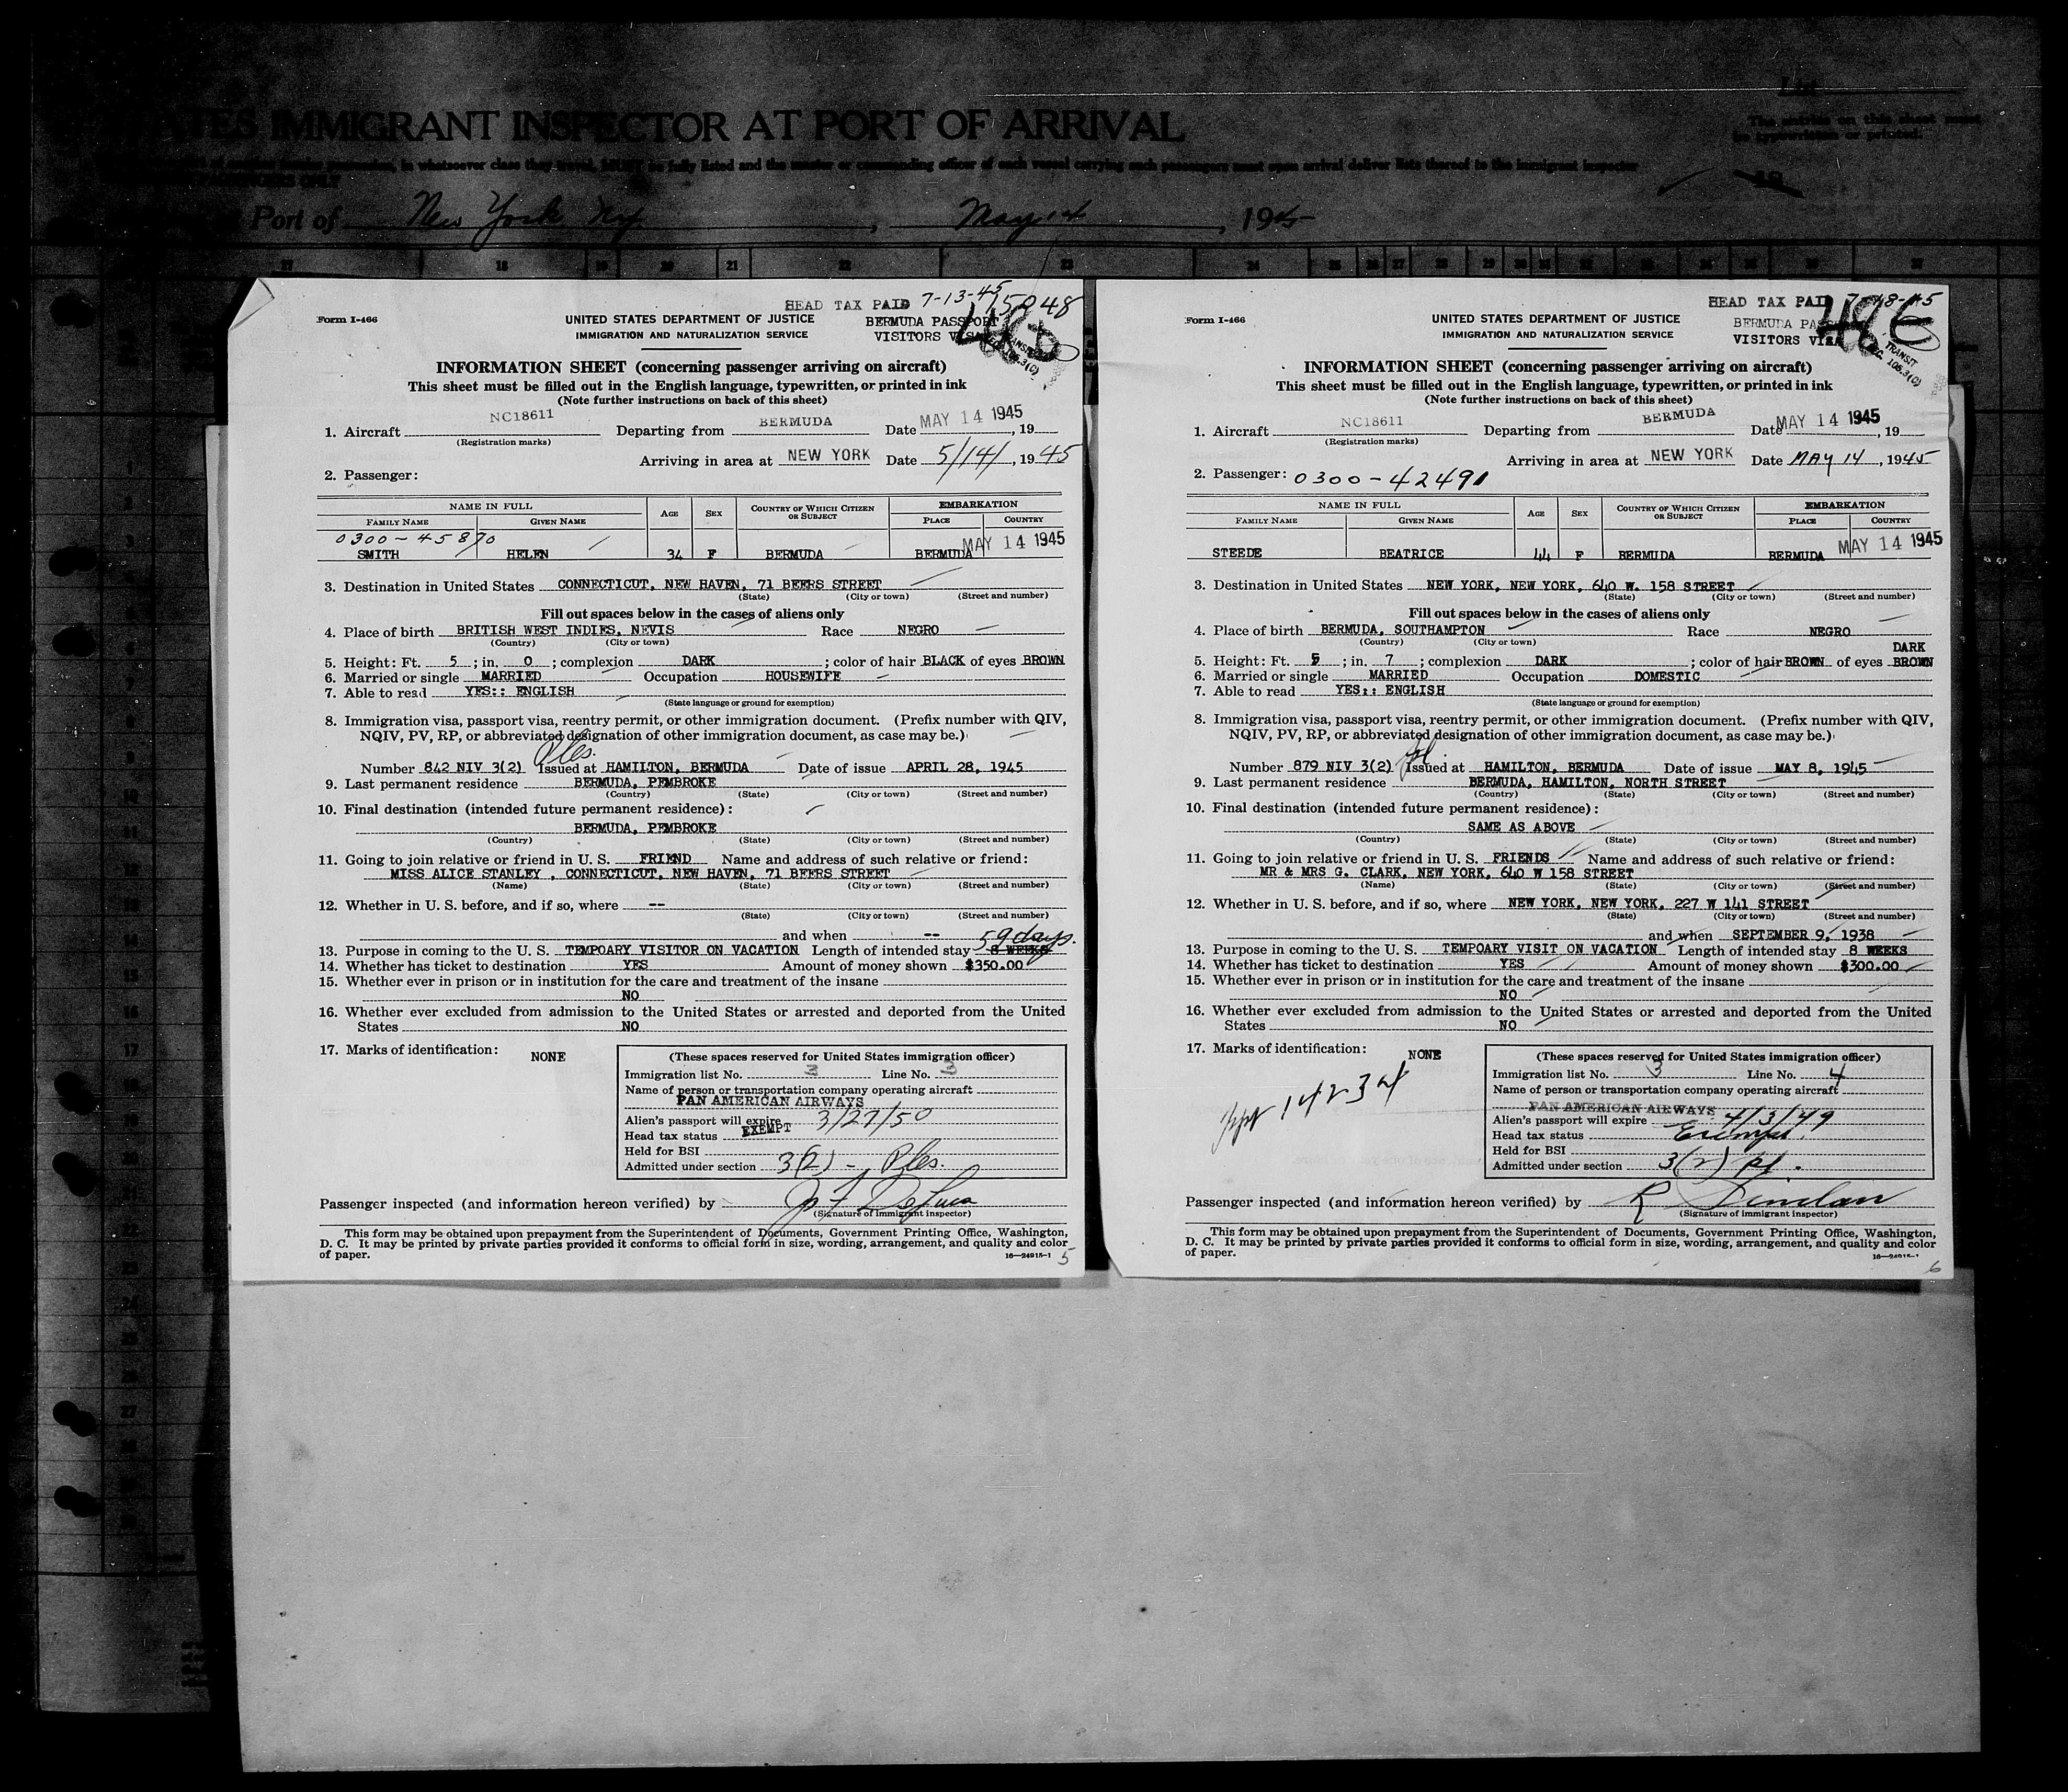 IMMIGRANT INSPECTOR AT PORT OF ARRIVAL
The entries on this sheet must
be typewritten or printed.
Port of New York NY, May 14, 1945
HEAD TAX PAID 7-13-45
15048
Form I-466
UNITED STATES DEPARTMENT OF JUSTICE
IMMIGRATION AND NATURALIZATION SERVICE
BERMUDA PASSPORT
VISITORS VISA
INFORMATION SHEET (concerning passenger arriving on aircraft)
This sheet must be filled out in the English language, typewritten, or printed in ink
(Note further instructions on back of this sheet)
1. Aircraft NC18611 Departing from BERMUDA Date MAY 14 1945, 19
(Registration marks)
Arriving in area at NEW YORK Date 5/14/, 1945
2. Passenger:
NAME IN FULL AGE SEX COUNTRY OF WHICH CITIZEN OR SUBJECT EMBARKATION
FAMILY NAME GIVEN NAME PLACE COUNTRY
0300-45870
SMITH HELEN 34 F BERMUDA BERMUDA MAY 14 1945
3. Destination in United States CONNECTICUT, NEW HAVEN, 71 BEERS STREET
(State) (City or town) (Street and number)
Fill out spaces below in the cases of aliens only
4. Place of birth BRITISH WEST INDIES, NEVIS Race NEGRO
(Country) (City or town)
5. Height: Ft. 5; in. 0; complexion DARK; color of hair BLACK of eyes BROWN
6. Married or single MARRIED Occupation HOUSEWIFE
7. Able to read YES:: ENGLISH
(State language or ground for exemption)
8. Immigration visa, passport visa, reentry permit, or other immigration document. (Prefix number with QIV,
NQIV, PV, RP, or abbreviated designation of other immigration document, as case may be.)
Number 842 NIV 3(2) Issued at HAMILTON, BERMUDA Date of issue APRIL 28, 1945
9. Last permanent residence BERMUDA, PEMBROKE
(Country) (State) (City or town) (Street and number)
10. Final destination (intended future permanent residence):
BERMUDA, PEMBROKE
(Country) (State) (City or town) (Street and number)
11. Going to join relative or friend in U. S. FRIEND Name and address of such relative or friend:
MISS ALICE STANLEY , CONNECTICUT, NEW HAVEN, 71 BEERS STREET
(Name) (State) (City or town) (Street and number)
12. Whether in U. S. before, and if so, where --
(State) (City or town) (Street and number)
and when --
59 days.
13. Purpose in coming to the U. S. TEMPOARY VISITOR ON VACATION Length of intended stay 8 WEEKS
14. Whether has ticket to destination YES Amount of money shown $350.00
15. Whether ever in prison or in institution for the care and treatment of the insane
NO
16. Whether ever excluded from admission to the United States or arrested and deported from the United
States NO
17. Marks of identification: NONE
(These spaces reserved for United States immigration officer)
Immigration list No. 3 Line No. 3
Name of person or transportation company operating aircraft
PAN AMERICAN AIRWAYS
Alien's passport will expire 3/27/50
Head tax status EXEMPT
Held for BSI
Admitted under section 3(2) -
Passenger inspected (and information hereon verified) by
(Signature of immigrant inspector)
This form may be obtained upon prepayment from the Superintendent of Documents, Government Printing Office, Washington,
D. C. It may be printed by private parties provided it conforms to official form in size, wording, arrangement, and quality and color
of paper.
16—24915-1
5
HEAD TAX PAID
Form I-466
UNITED STATES DEPARTMENT OF JUSTICE
IMMIGRATION AND NATURALIZATION SERVICE
BERMUDA
VISITORS VISA
TRANSIT
INFORMATION SHEET (concerning passenger arriving on aircraft)
This sheet must be filled out in the English language, typewritten, or printed in ink
(Note further instructions on back of this sheet)
1. Aircraft NC18611 Departing from BERMUDA Date MAY 14 1945, 19
(Registration marks)
Arriving in area at NEW YORK Date MAY 14, 1945
2. Passenger: 0300-42491
NAME IN FULL AGE SEX COUNTRY OF WHICH CITIZEN OR SUBJECT EMBARKATION
FAMILY NAME GIVEN NAME PLACE COUNTRY
STEEDE BEATRICE 44 F BERMUDA BERMUDA MAY 14 1945
3. Destination in United States NEW YORK, NEW YORK, 640 W. 158 STREET
(State) (City or town) (Street and number)
Fill out spaces below in the cases of aliens only
4. Place of birth BERMUDA, SOUTHAMPTON Race NEGRO
(Country) (City or town)
DARK
5. Height: Ft. 5; in. 7; complexion DARK; color of hair BROWN of eyes BROWN
6. Married or single MARRIED Occupation DOMESTIC
7. Able to read YES:: ENGLISH
(State language or ground for exemption)
8. Immigration visa, passport visa, reentry permit, or other immigration document. (Prefix number with QIV,
NQIV, PV, RP, or abbreviated designation of other immigration document, as case may be.)
Number 879 NIV 3(2) Issued at HAMILTON, BERMUDA Date of issue MAY 8, 1945
9. Last permanent residence BERMUDA, HAMILTON, NORTH STREET
(Country) (State) (City or town) (Street and number)
10. Final destination (intended future permanent residence):
SAME AS ABOVE
(Country) (State) (City or town) (Street and number)
11. Going to join relative or friend in U. S. FRIENDS Name and address of such relative or friend:
MR & MRS G. CLARK, NEW YORK, 640 W 158 STREET
(Name) (State) (City or town) (Street and number)
12. Whether in U. S. before, and if so, where NEW YORK, NEW YORK, 227 W 141 STREET
(State) (City or town) (Street and number)
and when SEPTEMBER 9, 1938
13. Purpose in coming to the U. S. TEMPOARY VISIT ON VACATION Length of intended stay 8 WEEKS
14. Whether has ticket to destination YES Amount of money shown $300.00
15. Whether ever in prison or in institution for the care and treatment of the insane
NO
16. Whether ever excluded from admission to the United States or arrested and deported from the United
States NO
17. Marks of identification: NONE
14234
(These spaces reserved for United States immigration officer)
Immigration list No. 3 Line No. 4
Name of person or transportation company operating aircraft
PAN AMERICAN AIRWAYS
Alien's passport will expire 4/3/49
Head tax status Exempt.
Held for BSI
Admitted under section 3(2)
Passenger inspected (and information hereon verified) by
(Signature of immigrant inspector)
This form may be obtained upon prepayment from the Superintendent of Documents, Government Printing Office, Washington,
D. C. It may be printed by private parties provided it conforms to official form in size, wording, arrangement, and quality and color
of paper.
6